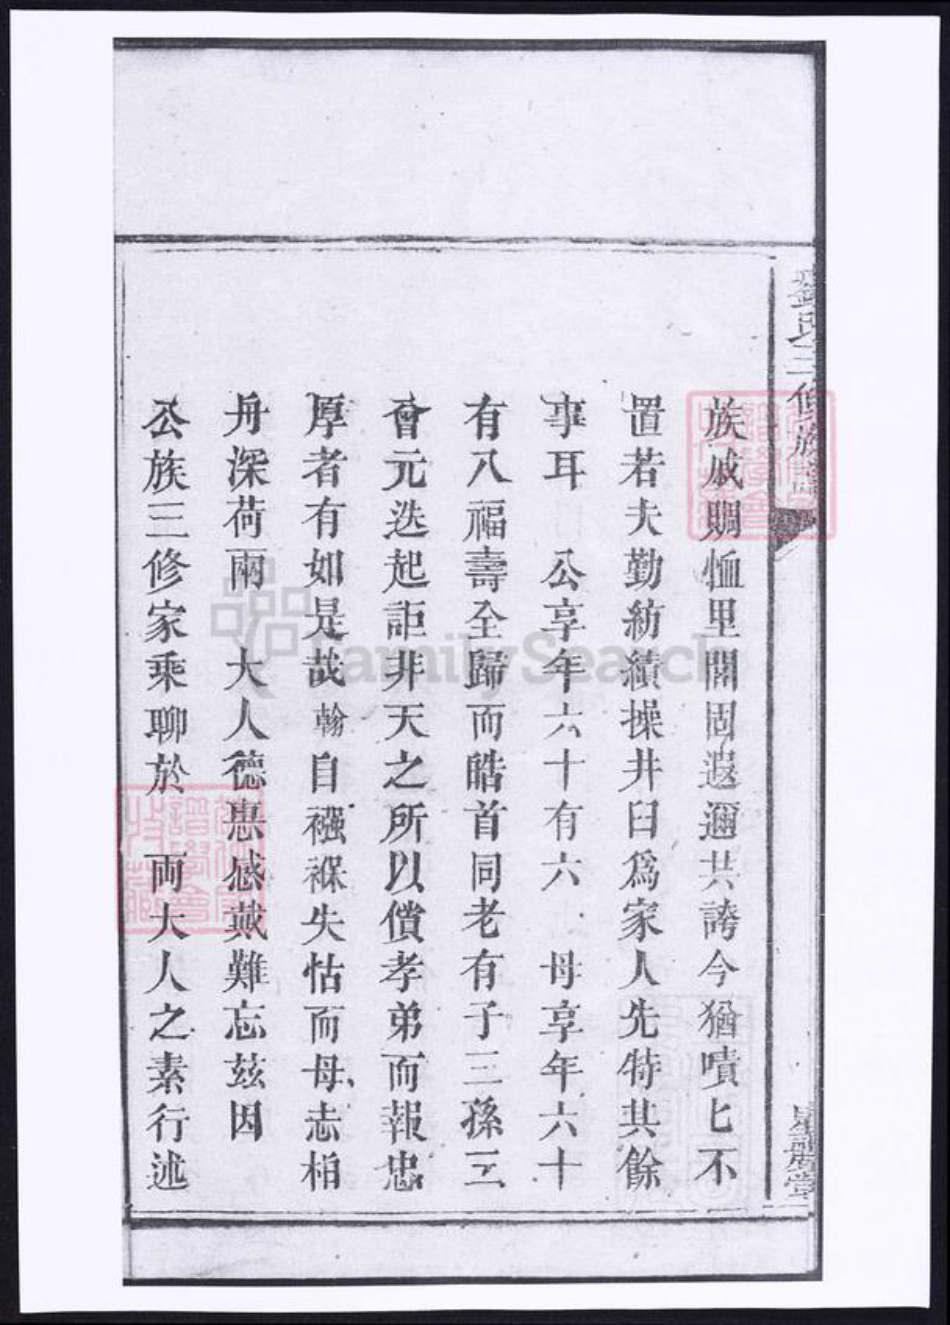 氏三修族譜
族戚賙恤里閈固遐邇共誇今猶嘖匕不
置若夫勤紡績操井臼爲家人先特其餘
事耳 公享年六十有六 母享年六十
有八福壽全歸而皓首同老有子三孫三
會元迭起詎非天之所以償孝弟而報忠
厚者有如是哉翰自襁褓失怙而母志柏
舟深荷兩 大人德惠感戴難忘茲因
公族三修家乘聊於 兩大人之素行述
FamilySearch